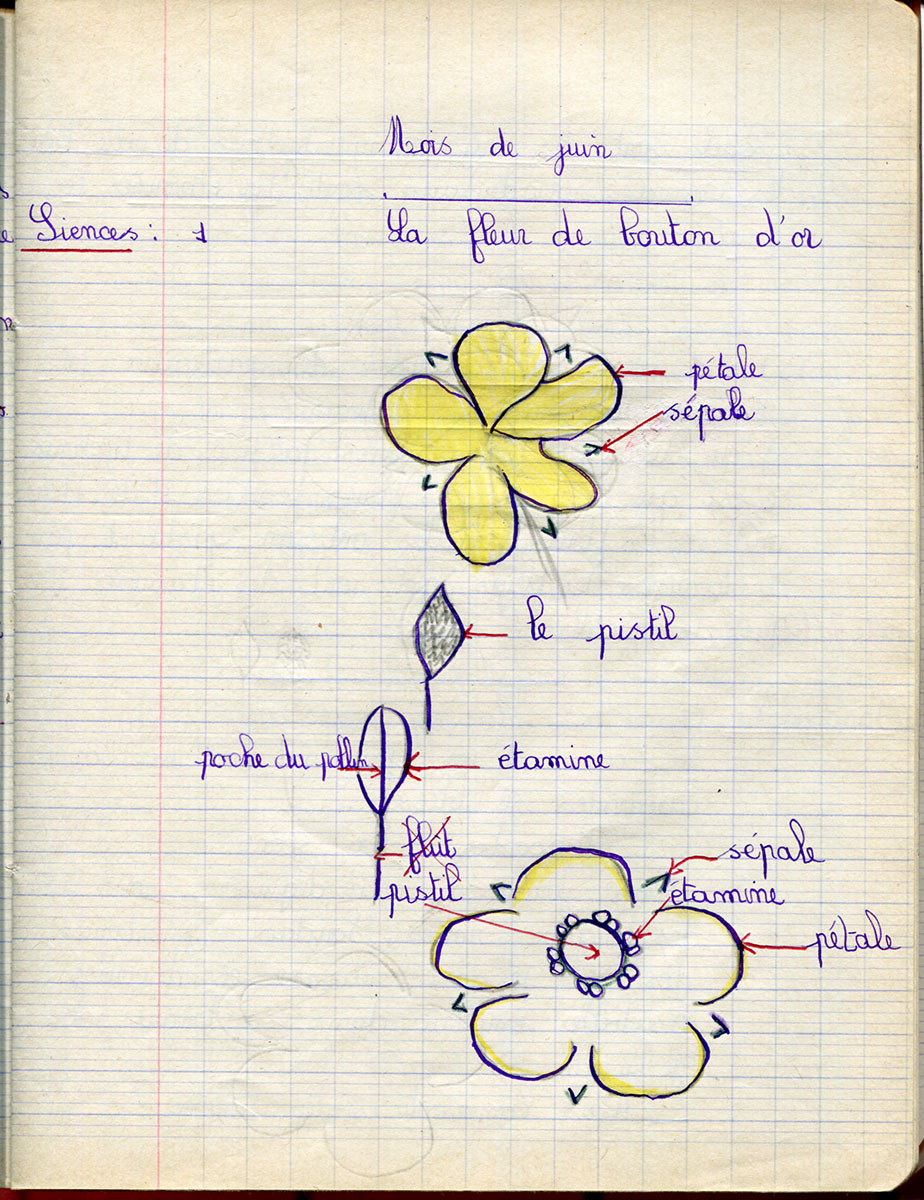 Mois de juin
Siences : 1
La fleur de bouton d'or
pétale
sépale
le pistil
poche du pollen
étamine
flût
pistil
sépale
étamine
pétale